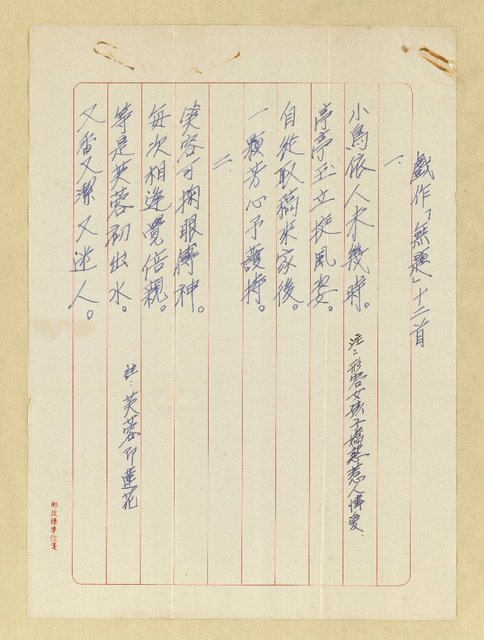 戲作「無題」十二首
一、
小鳥依人未幾時。
註：形容女孩子嬌慈惹人憐愛.
亭亭玉立旋風姿。
自從取稿來家後。
一顆芳心予護持。
二、
笑容可掬眼傳神。
每次相逢覺倍親。
等是芙蓉初出水。
註：芙蓉即蓮花
又香又潔又迷人。
郵政標準信箋